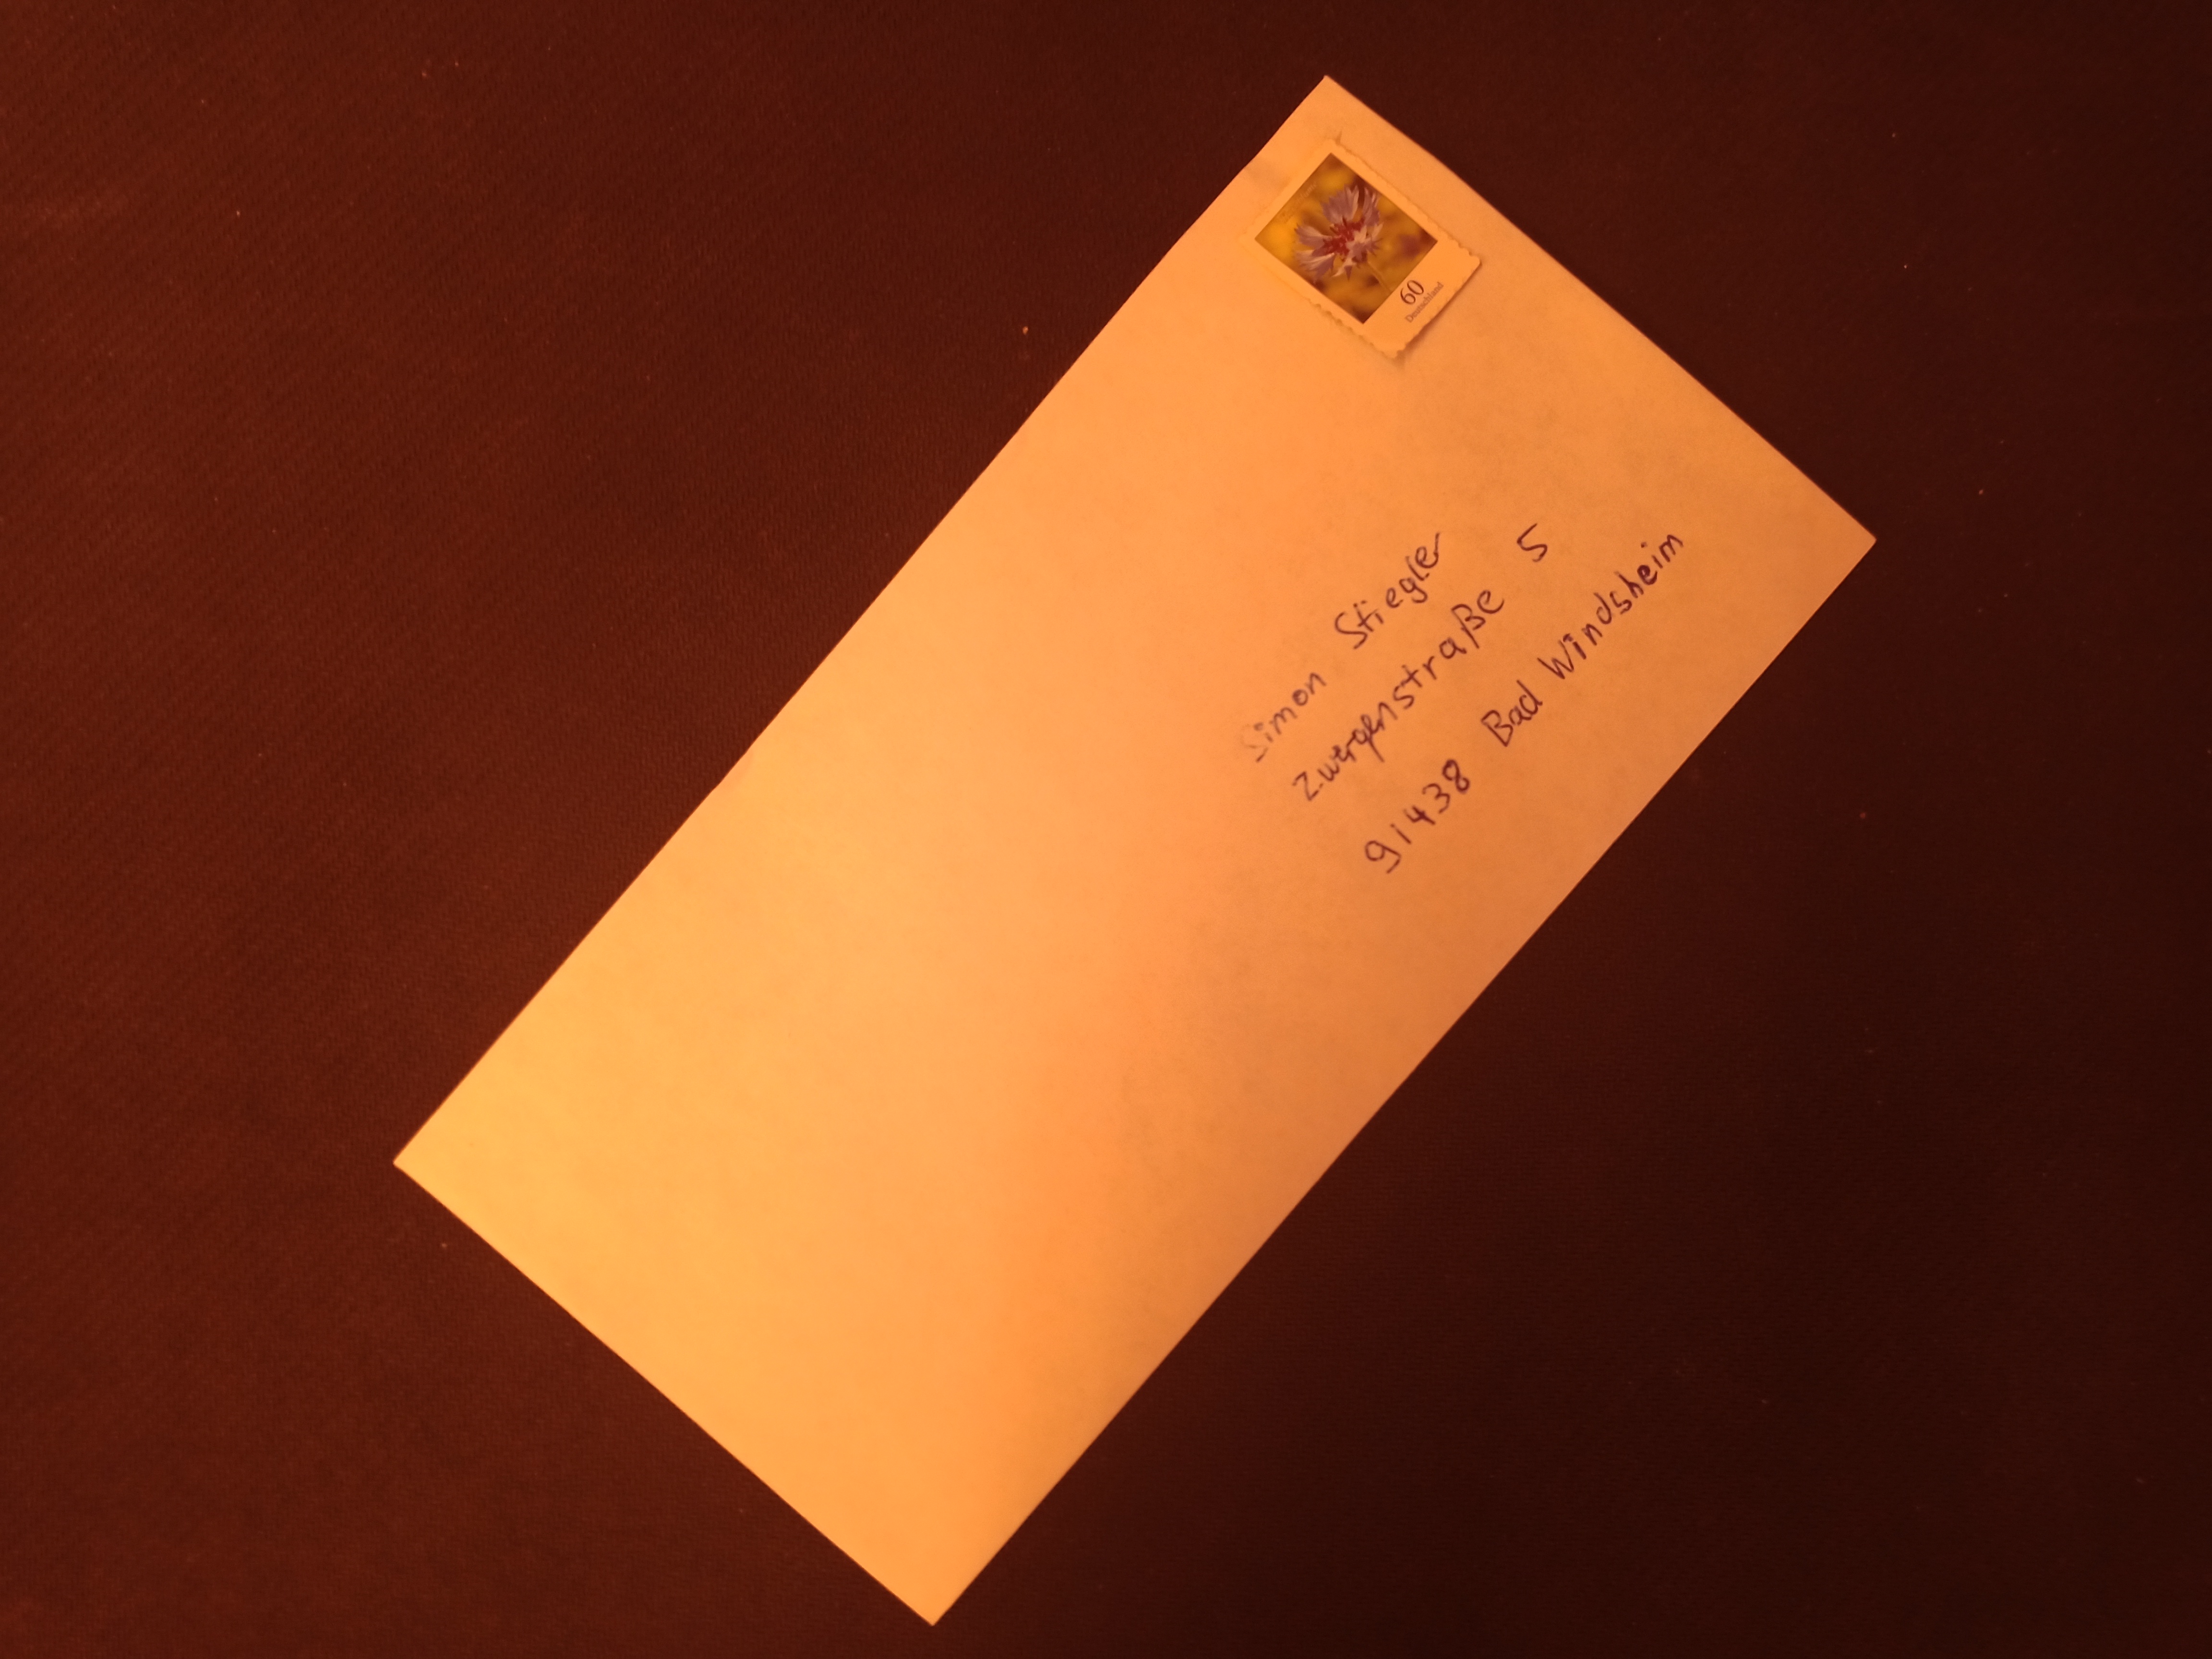 60
Deutschland
Simon Stiegler
Zwergenstraße 5
91438 Bad Windsheim